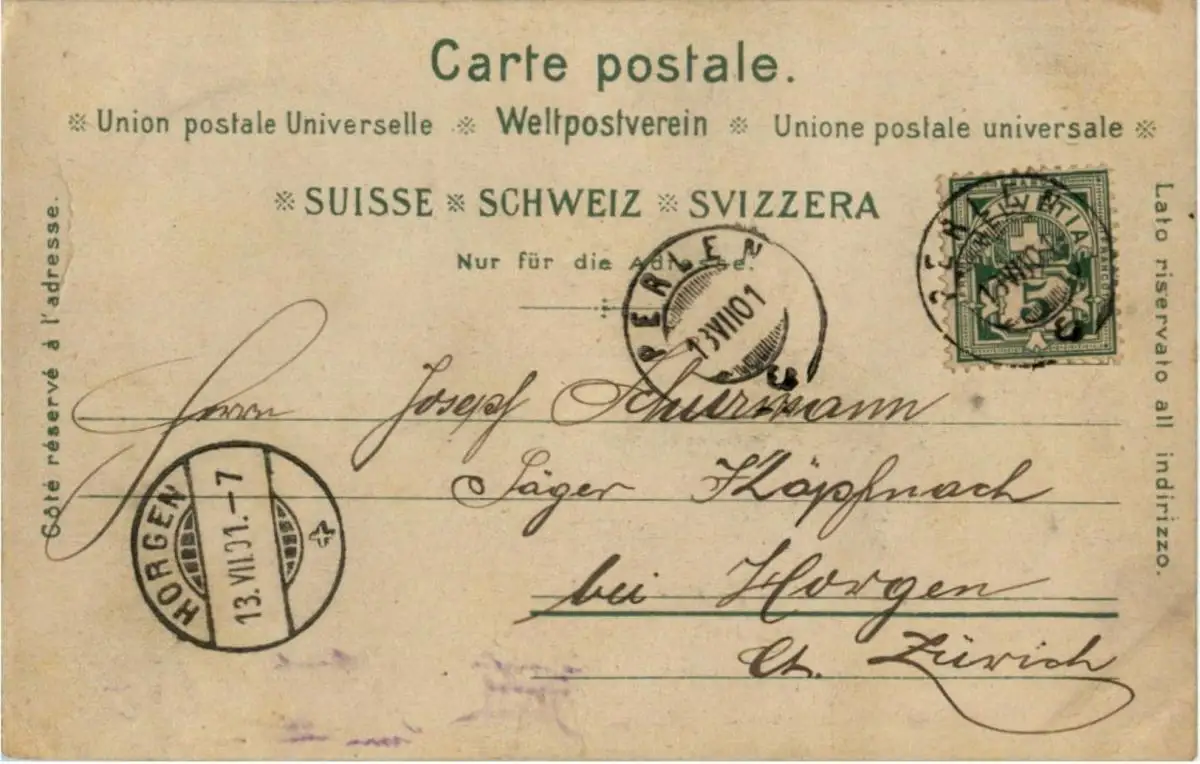 Carte postale.
※ Union postale Universelle ※ Weltpostverein ※ Unione postale universale ※
※ SUISSE ※ SCHWEIZ ※ SVIZZERA
Nur für die Adresse.
Côté réservé à l'adresse.
Lato riservato all indirizzo.
HELVETIA
FRANCO
5
PERLEN
13 VII 01
PERLEN
13 VII 01
Herrn Josepf Schurmann
Jäger Käpfnach
bei Horgen
Ct. Zürich
HORGEN
13. VII. 01. – 7